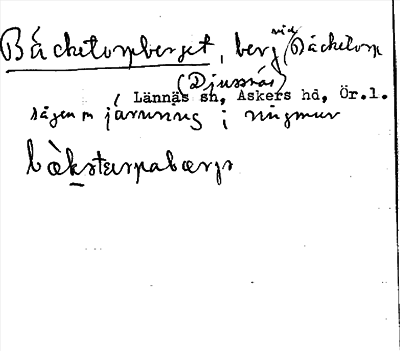 Bäcketorpberget, berg vid Bäcketorp
(Djusnäs)
Lännäs sn, Askers hd, Ör.l.
sägen m järnring i
bækstarpabærje